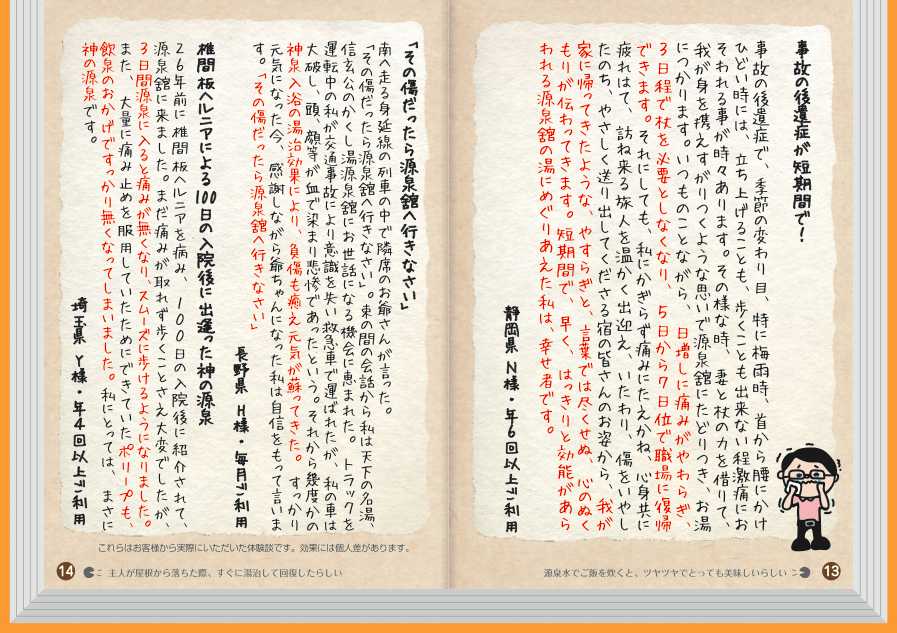 事故の後遺症が短期間で!
事故の後遺症で、季節の変わり目、特に梅雨時、首から腰にかけ
ひどい時には、立ち上げることも、歩くことも出来ない程激痛にお
そわれる事が時々あります。その様な時、妻と杖の力を借りて、
我が身を携えすがりつくような思いで源泉舘にたどりつき、お湯
につかります。いつものことながら、日増しに痛みがやわらぎ、
3日程で杖を必要としなくなり、5日から7日位で職場に復帰
できます。それにしても、私にかぎらず痛みにたえかね、心身共に
疲れはて、訪ね来る旅人を温かく出迎え、いたわり、傷をいやし
たのち、やさしく送り出してくださる宿の皆さんのお姿から、我が
家に帰ってきたような、やすらぎと、言葉では尽くせぬ、心のぬく
もりが伝わってきます。短期間で、早く、はっきりと効能があら
われる源泉舘の湯にめぐりあえた私は、幸せ者です。
静岡県 N様・年6回以上ご利用
源泉水でご飯を炊くと、ツヤツヤでとっても美味しいらしい
13
「その傷だったら源泉舘へ行きなさい」
南へ走る身延線の列車の中で隣席のお爺さんが言った。
「その傷だったら源泉舘へ行きなさい」。束の間の会話から私は天下の名湯、
信玄公のかくし湯源泉舘にお世話になる機会に恵まれた。トラックを
運転中の私が交通事故により意識を失い救急車で運ばれたが、私の車は
大破し、頭、顔等が血で染まり悲惨であったという。それから幾度かの
神泉入浴の湯治効果により、負傷も癒え元気が蘇ってきた。すっかり
元気になった今、感謝しながら爺ちゃんになった私は自信をもって言いま
す。「その傷だったら源泉舘へ行きなさい」
長野県 H様・毎月ご利用
椎間板ヘルニアによる100日の入院後に出逢った神の源泉
26年前に椎間板ヘルニアを病み、100日の入院後に紹介されて、
源泉舘に来ました。まだ痛みが取れず歩くことさえ大変でしたが、
3日間源泉に入ると痛みが無くなり、スムーズに歩けるようになりました。
また、大量に痛み止めを服用していたためにできていたポリープも、
飲泉のおかげですっかり無くなってしまいました。私にとっては、まさに
神の源泉です。
埼玉県 Y様・年4回以上ご利用
これらはお客様から実際にいただいた体験談です。効果には個人差があります。
14
主人が屋根から落ちた際、すぐに湯治して回復したらしい